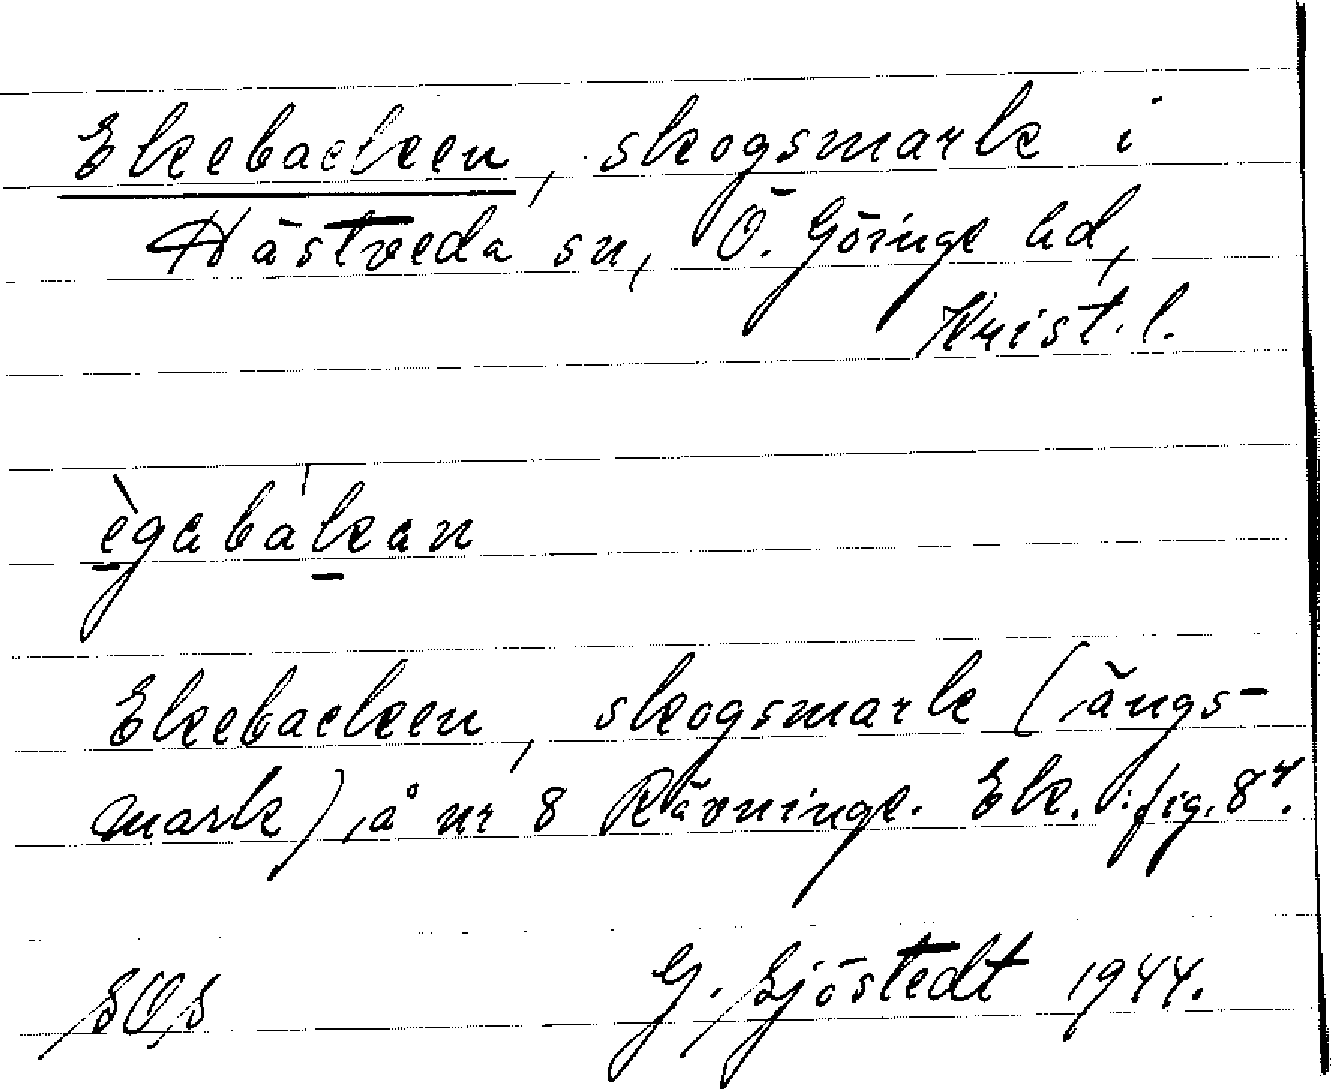 Ekebacken, skogsmark i
Hästveda sn, Ö. Göinge hd,
Krist. l.
ègabákan
Ekebacken, skogsmark (ängs-
mark), å nr 8 Rävninge. Ek. :fig. 8⁴.
G. Sjöstedt 1944.